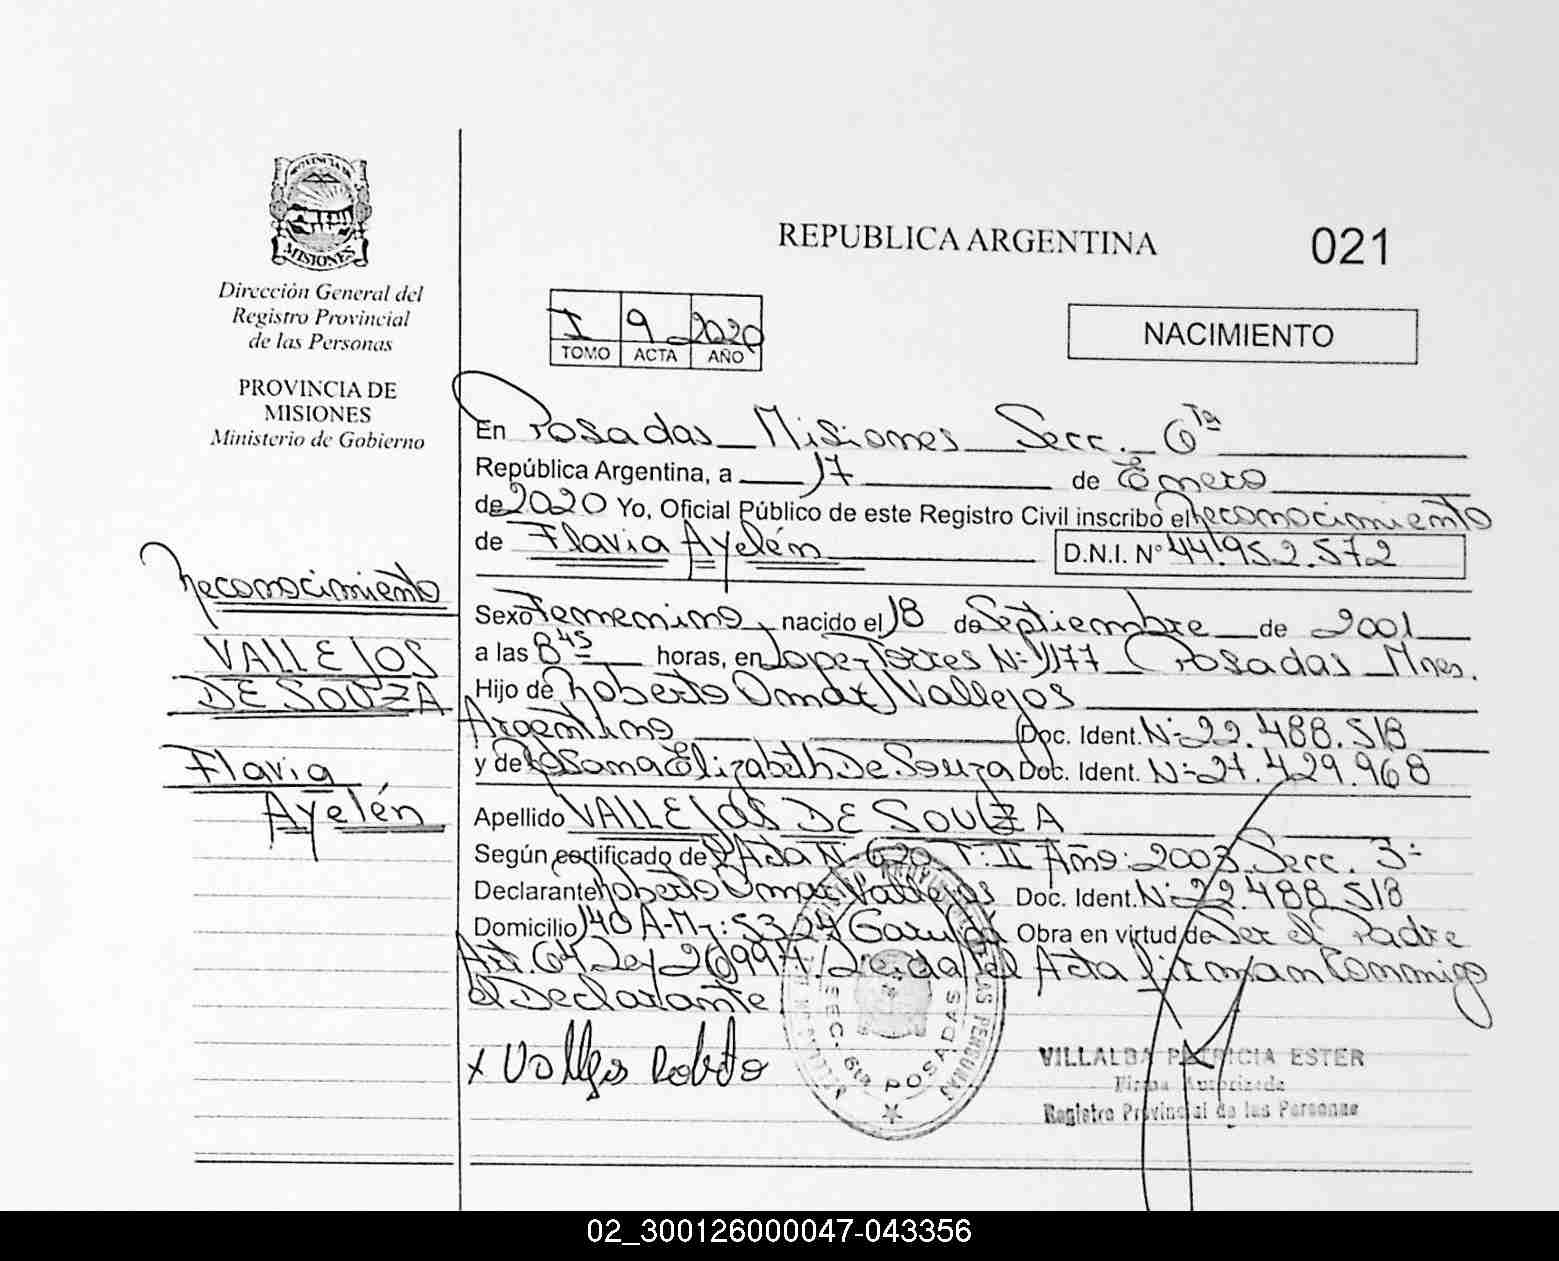 PROVINCIA DE
MISIONES
Dirección General del
Registro Provincial
de las Personas
PROVINCIA DE
MISIONES
Ministerio de Gobierno
Reconocimiento
VALLEJOS
DE SOUZA
Flavia
Ayelén
REPUBLICA ARGENTINA 021
I 9 2020
TOMO ACTA AÑO
NACIMIENTO
En Posadas Misiones Secc. 6ta
República Argentina, a 17 de Enero
de 2020 Yo, Oficial Público de este Registro Civil inscribo el Reconocimiento
de Flavia Ayelén D.N.I. Nº 44.952.572
Sexo Femenino, nacido el 18 de Septiembre de 2001
a las 8 45 horas, en Lopez Torres Nº 1177 Posadas Mnes.
Hijo de Roberto Omar Vallejos
Argentino Doc. Ident. Nº 22.488.518
y de Rosana Elizabeth De Souza Doc. Ident. Nº 27.429.968
Apellido VALLEJOS DE SOUZA
Según certificado de Acta Nº 620 T: II Año: 2003 Secc. 3º
Declarante Roberto Omar Vallejos Doc. Ident. Nº 22.488.518
Domicilio 140 A-Mz: 53 24 Garupá Obra en virtud de Ser el Padre
Art. 64 Ley 26994. Leída el Acta firman Conmigo
el Declarante
x Vallejos Roberto
SECC. 6ta POSADAS
VILLALBA PATRICIA ESTER
Firma Autorizada
Registro Provincial de las Personas
02_300126000047-043356